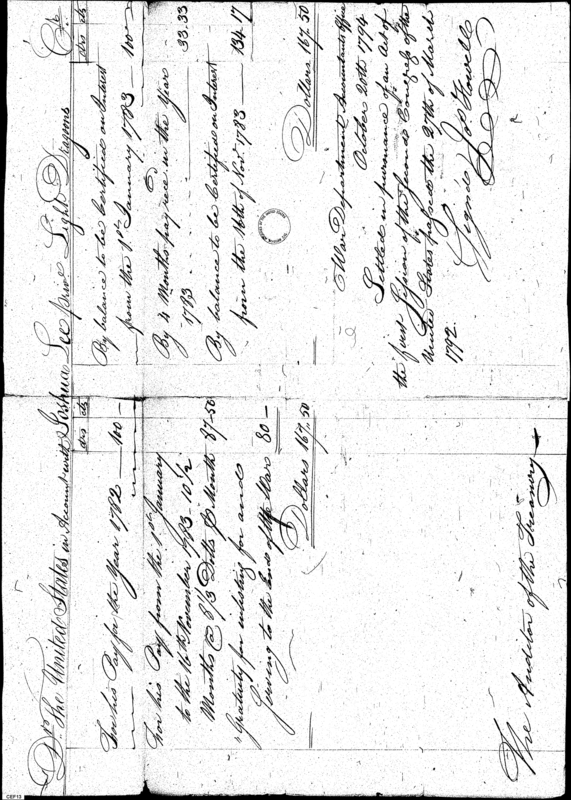 Dr. The United States in Account with Joshua Lee priv. Light Dragoons Cr.
dols cts
For his Pay for the Year 1782 — 100 —
For his Pay from the 1st of January
to the 16th November 1783 - 10 1/2
Months @ 8 1/3 Dolls ⅌ Month 87-50
Gratuity for enlisting for and
serving to the end of the War 80 —
Dollars 167.50
The Auditor of the Treasury
dols cts
By balance to be Certified on Interest
from the 1st January 1783 — 100 —
By 4 Months pay rec'd in the Year
1783 . . . . . . 33.33
By balance to be Certified on Interest
from the 16th of Novr 1783 — 134.17
Dollars 167.50
War Department Accountants Office
October 20th 1794
Settled in pursuance of an Act of
the first Session of the second Congress of the
United States passed the 27th of March
1792.
Signed Jos Howell
CEP13